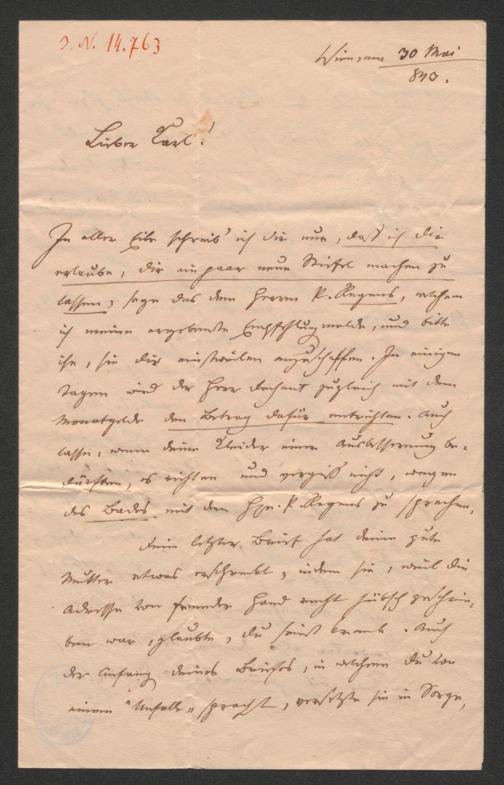 J. N. 14.763
Wien, am 30 Mai
843.
Lieber Carl!
In aller Eile schreib' ich dir nur, daß ich dir
erlaube, dir ein paar neue Stiefel machen zu
lassen; sage das dem Herrn P. Regens, welchem
ich meine ergebenste Empfehlung melde, und bitte
ihn, sie dir einstweilen anzuschaffen. In einigen
Tagen wird der Herr Dechant zugleich mit dem
Monatgelde den Betrag dafür entrichten. Auch
lasse, wenn deine Kleider einer Ausbesserung be-
dürften, es richten und vergiß nicht, wegen
des Bades mit dem Hrn. P. Regens zu sprechen.
Dein letzter Brief hat deine gute
Mutter etwas erschreckt, indem sie, weil die
Adresse von fremder Hand recht hübsch geschrie-
ben war, glaubte, du seist krank. Auch
der Anfang deines Briefes, in welchem du von
einem "Unfalle" sprachst, versetzte sie in Sorge,